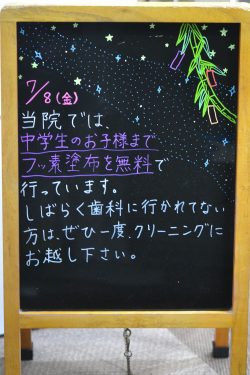 7/8(金)
当院では
中学生のお子様まで
フッ素塗布を無料で
行っています。
しばらく歯科に行かれてない
方は、ぜひ一度、クリーニングに
お越し下さい。